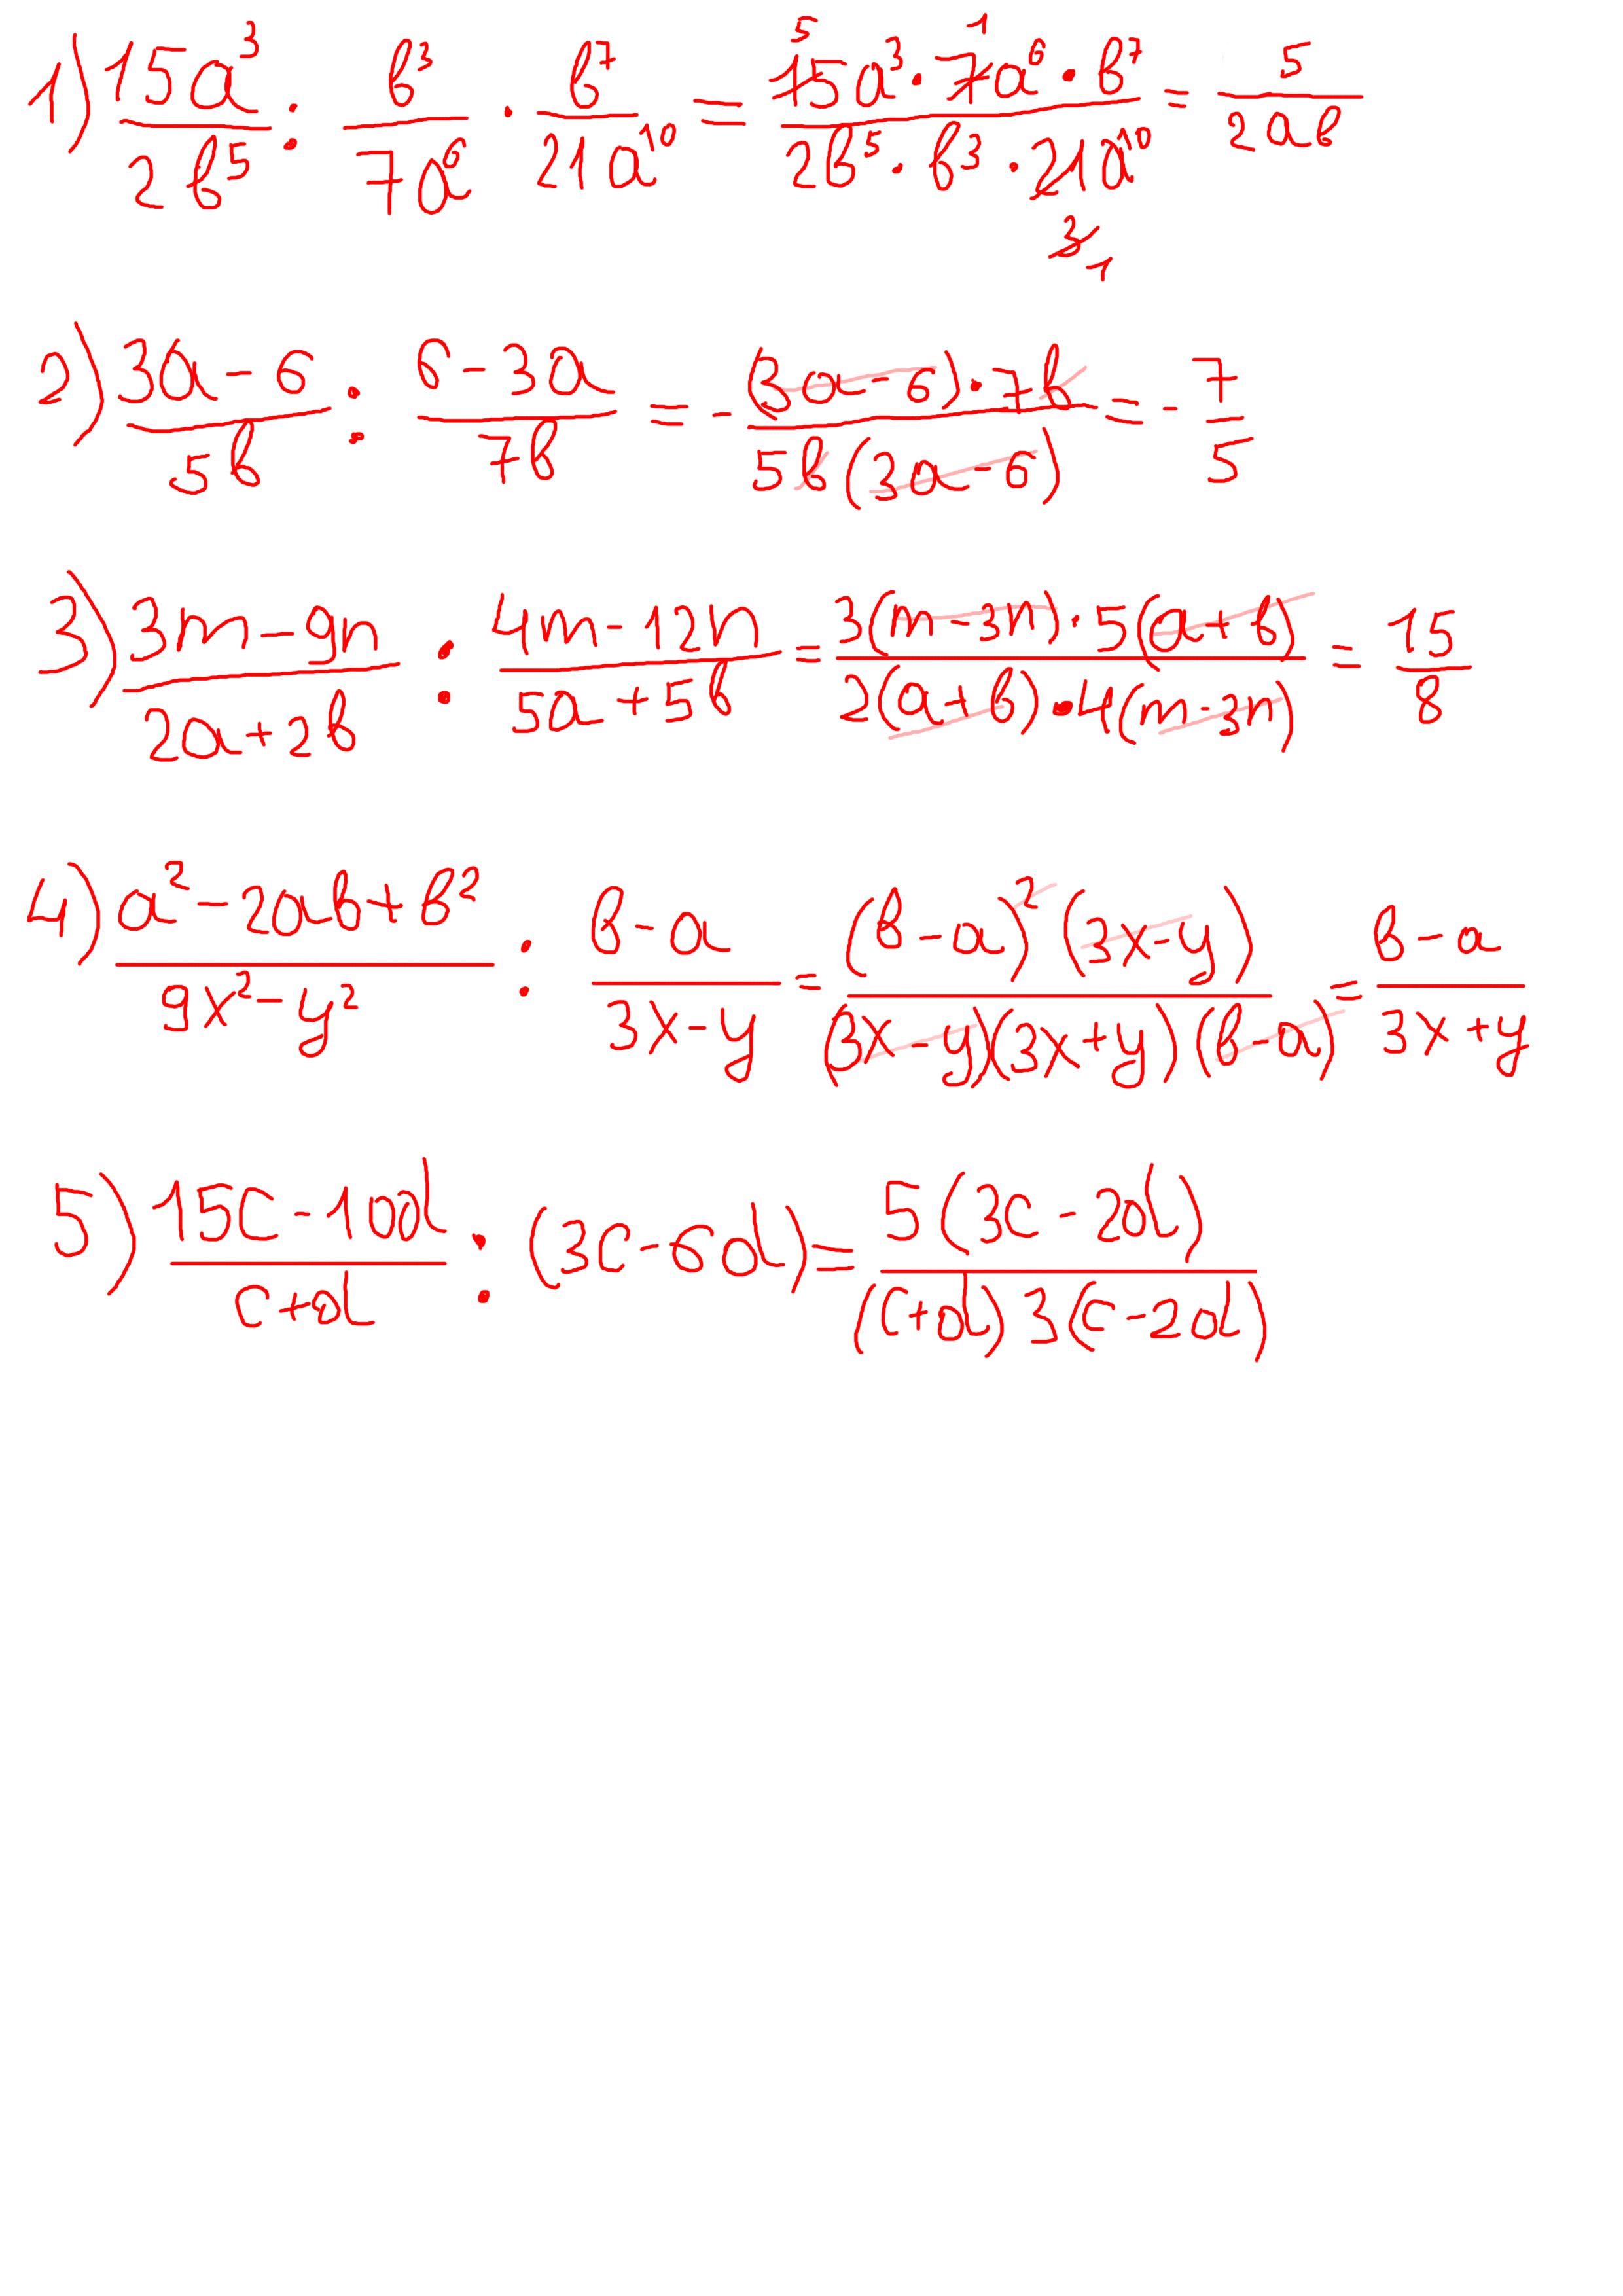 1) 15a³/2b⁵ : b³/7a⁶ · b⁷/21a¹⁰ = 15a³ · 7a⁶ · b⁷/2b⁵ · b³ · 21a¹⁰ = 5/2ab
2) 3a-6/5b : 6-3a/7b = -(3a-6)·7b/5b(3a-6) = -7/5
3) 3m-9n/2a+2b : 4m-12n/5a+5b = 3(m-3n)·5(a+b)/2(a+b)·4(m-3n) = 15/8
4) a²-2ab+b²/9x²-y² : b-a/3x-y = (b-a)²(3x-y)/(3x-y)(3x+y)(b-a) = b-a/3x+y
5) 15c-10d/c+d : (3c-6d) = 5(3c-2d)/(c+d)3(c-2d)